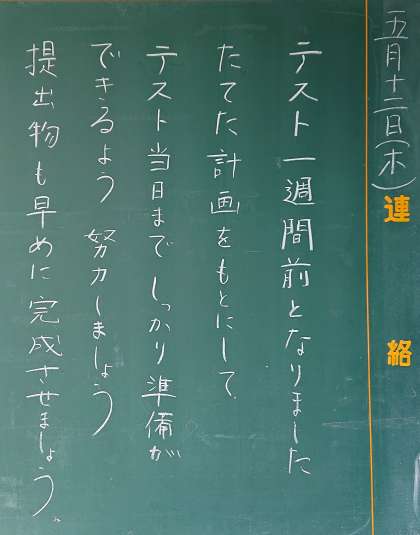 五月十二日(木)
連絡
テスト一週間前となりました
たてた計画をもとにして、
テスト当日までしっかり準備が
できるよう努力しましょう
提出物も早めに完成させましょう。